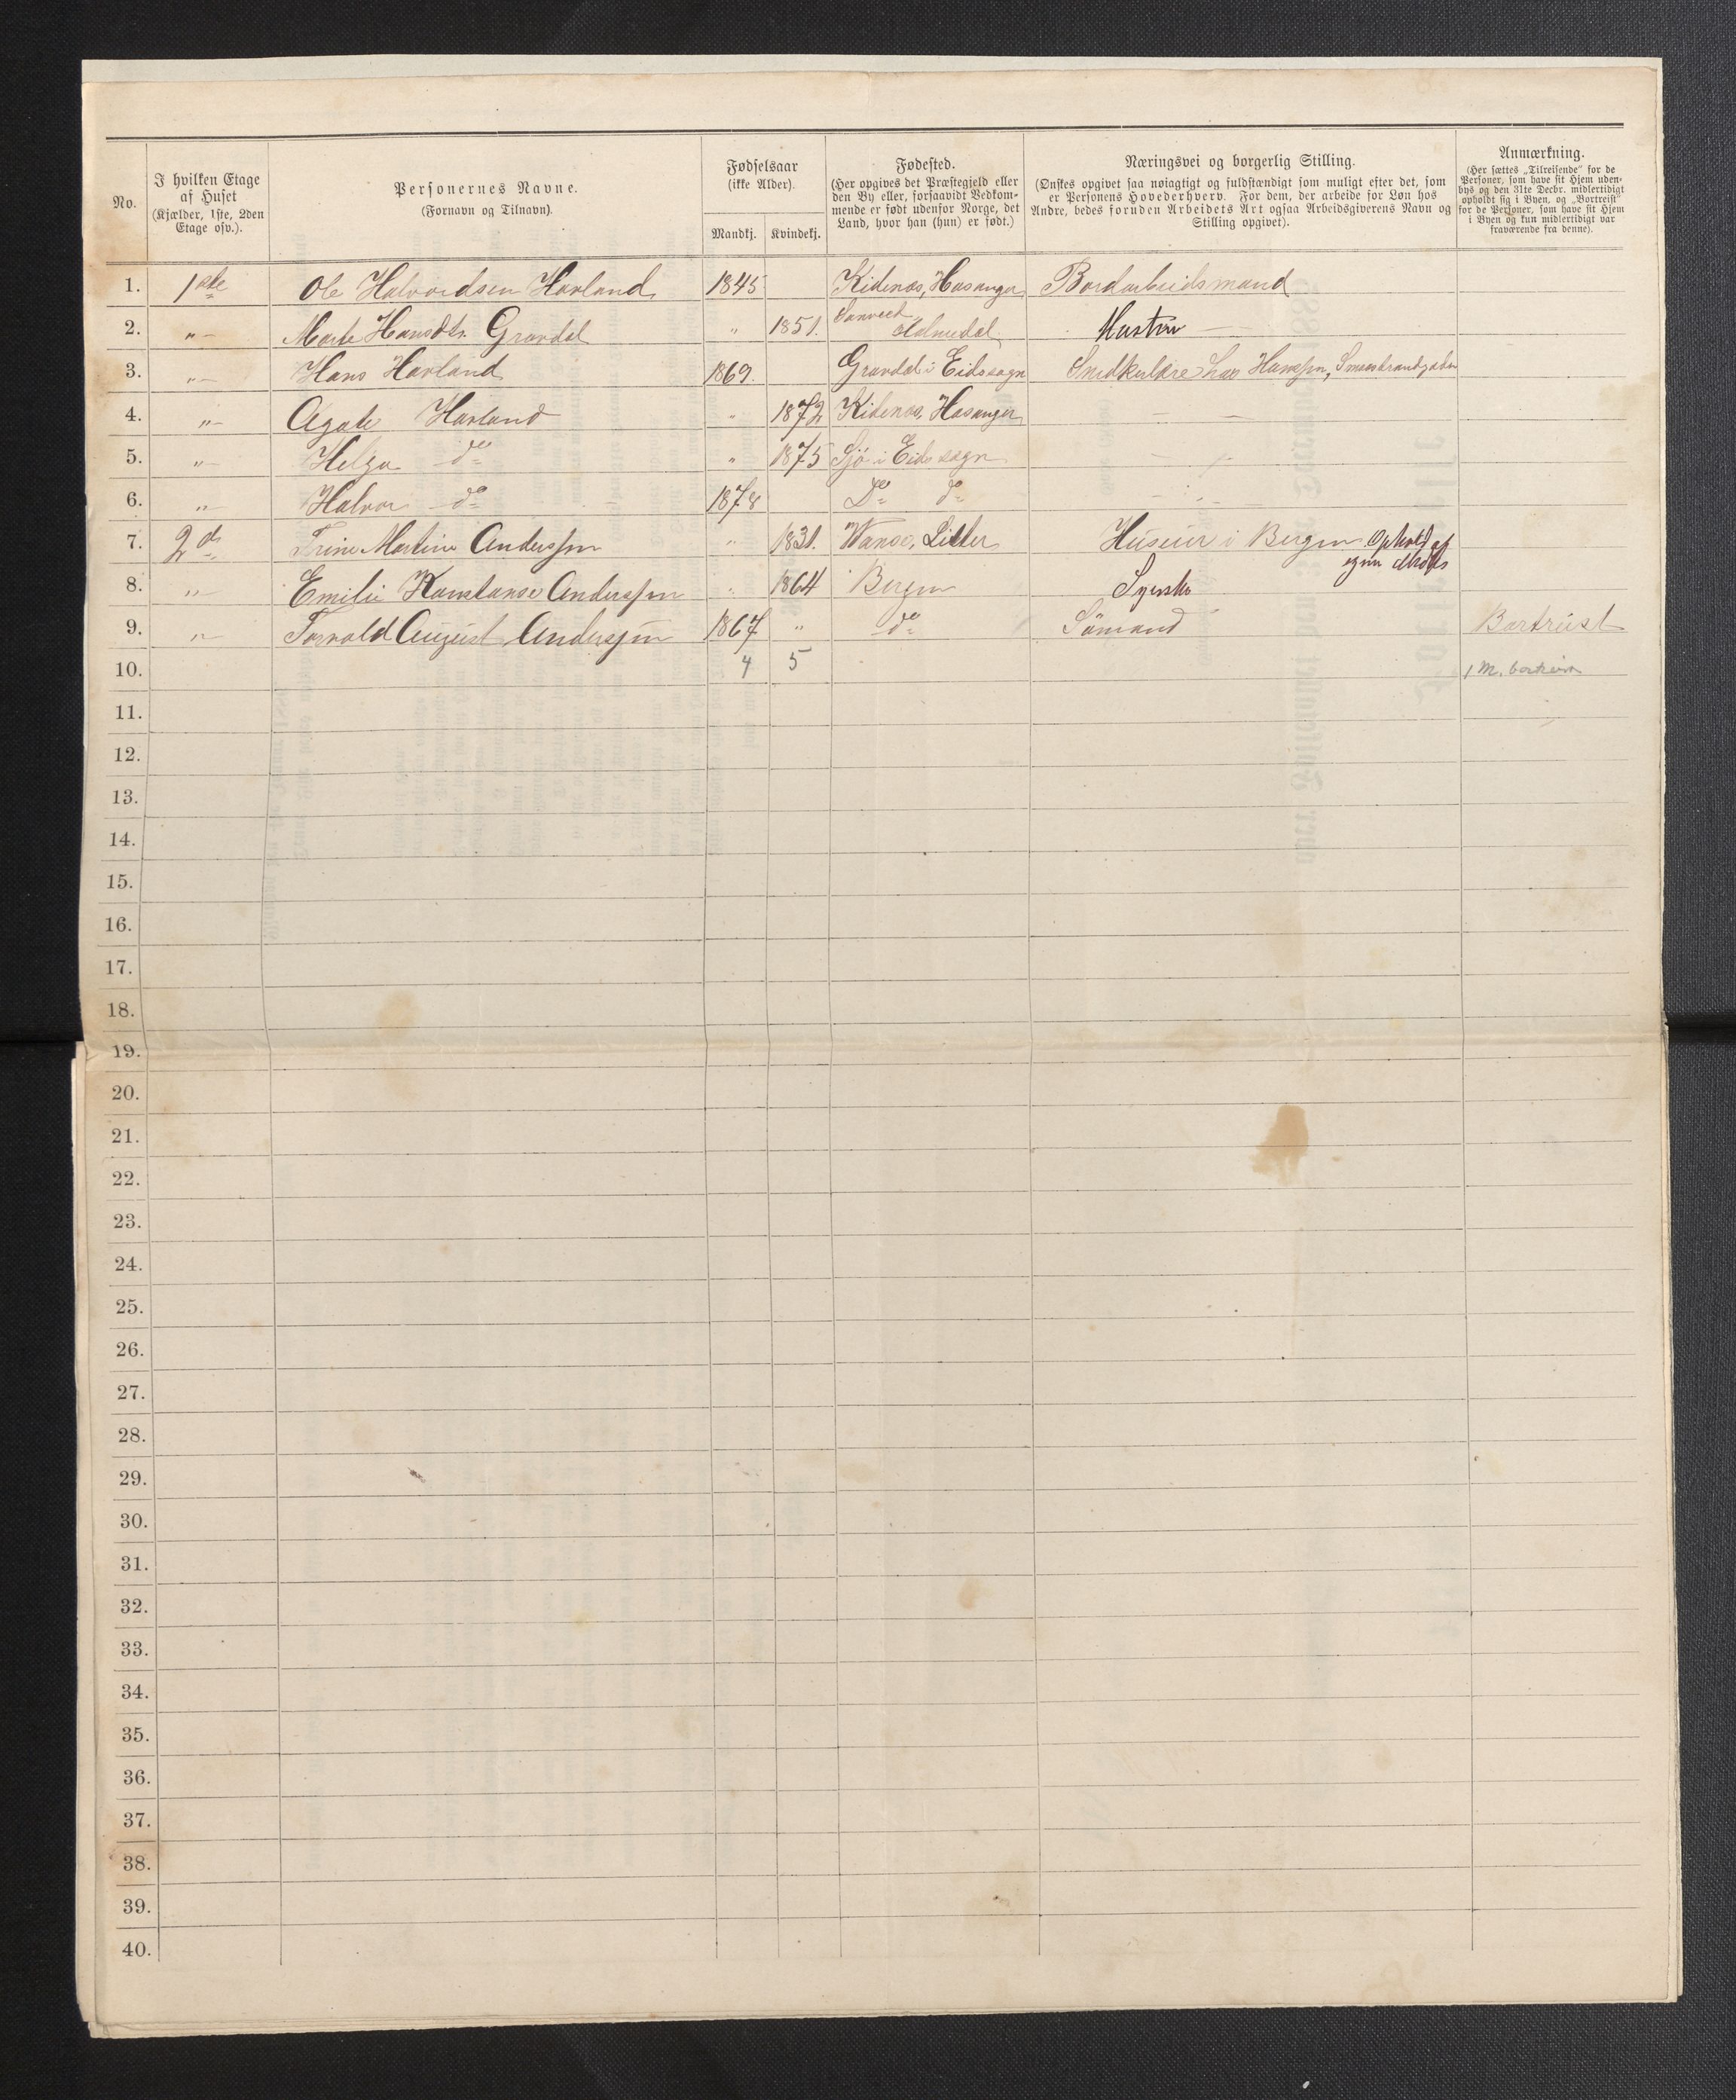 No.
I hvilken Etage
af Huset
(Kjælder, 1ste, 2den
Etage osv.).
Personernes Navne.
(Fornavn og Tilnavn).
Fødselsaar
(ikke Alder).
Mandkj. Kvindekj.
Fødested.
(Her opgives det Præstegjeld eller
den By eller, forsaavidt Vedkom-
mende er født udenfor Norge, det
Land, hvor han (hun) er født.)
Næringsvei og borgerlig Stilling.
(Ønskes opgivet saa nøiagtigt og fuldstændigt som muligt efter det, som
er Personens Hovederhverv. For dem, der arbeide for Løn hos
Andre, bedes foruden Arbeidets Art ogsaa Arbeidsgiverens Navn og
Stilling opgivet).
Anmærkning.
(Her sættes „Tilreisende“ for de
Personer, som have sit Hjem uden-
bys og den 31te Decbr. midlertidigt
opholdt sig i Byen, og „Bortreist“
for de Personer, som have sit Hjem
i Byen og kun midlertidigt var
fraværende fra denne).
1. 1ste Ole Halvordsen Havland 1845 Kidenæs, Hosanger Bordarbeidsmand
2. „ – Marte Hansdtr. Gravdal „ 1851. Hustru
3. „ – Hans Havland 1869. Gravdal i Eidssogn Hansen,
4. „ – Agate Havland „ 1872 Kidenæs, Hosanger – –
5. „ – Helga do „ 1875 Sjö i Eidssogn
6. „ – Halvor do 1878 Do do
7. 2d Trine Martine Anderssen „ 1831. Wanse, Lister Huseier i Bergen
egen
8. „ – Emilie Konstanse Anderssen „ 1864 Bergen Syerske
9. „ – Torvald August Anderssen 1867 „ do Sömand Bortreist
10. 4 5 1 M. bortreist
11.
12.
13.
14.
15.
16.
17.
18.
19.
20.
21.
22.
23.
24.
25.
26.
27.
28.
29.
30.
31.
32.
33.
34.
35.
36.
37.
38.
39.
40.